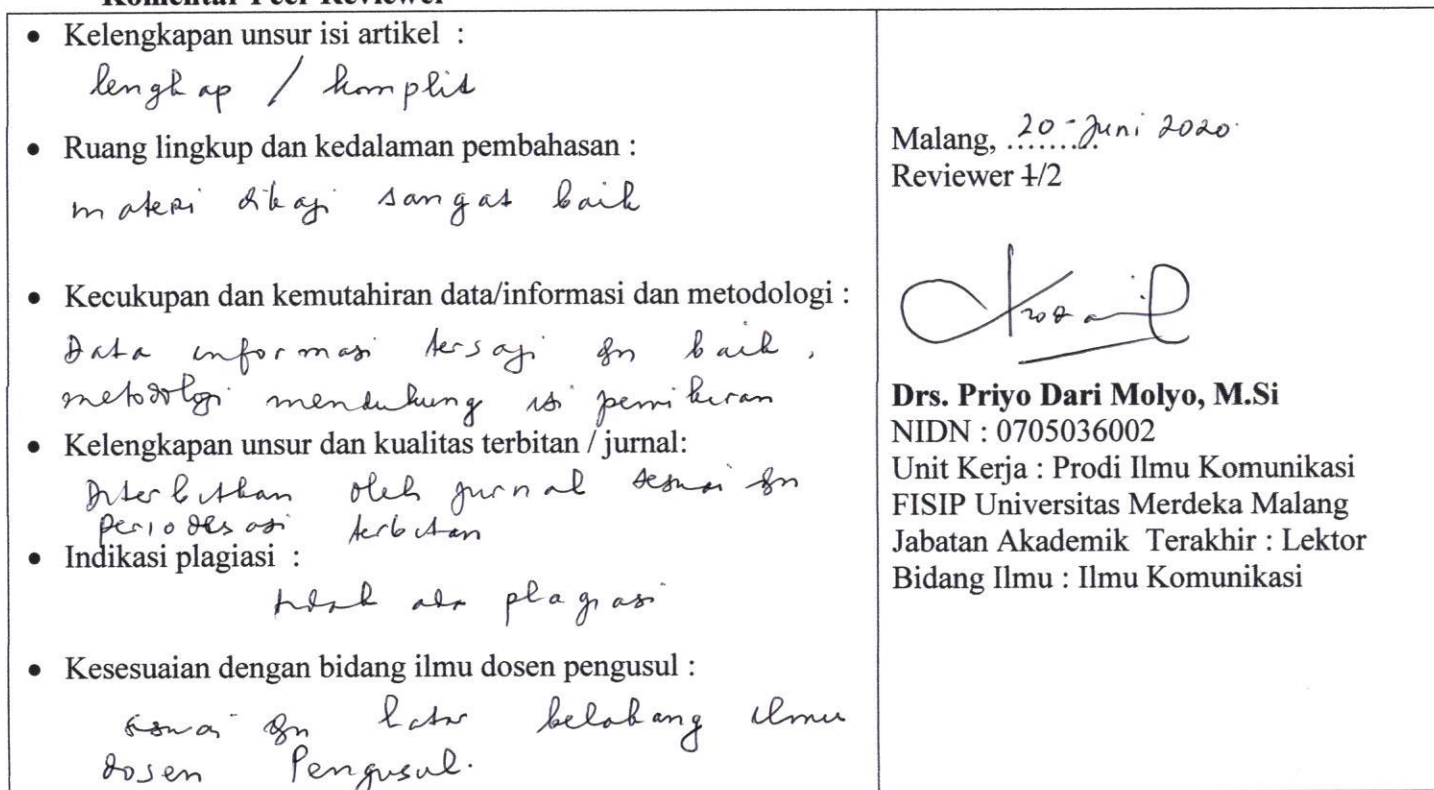 Komentar Peer Reviewer
• Kelengkapan unsur isi artikel :
lengkap / komplit
• Ruang lingkup dan kedalaman pembahasan :
materi dikaji sangat baik
• Kecukupan dan kemutahiran data/informasi dan metodologi :
Data informasi tersaji dgn baik,
metodologi mendukung isi pemikiran
• Kelengkapan unsur dan kualitas terbitan / jurnal:
Diterbitkan oleh jurnal sesuai dgn
periodesasi terbitan
• Indikasi plagiasi :
tidak ada plagiasi
• Kesesuaian dengan bidang ilmu dosen pengusul :
sesuai dgn latar belakang ilmu
dosen Pengusul.
Malang, 20 - Juni 2020
Reviewer 1/2
Drs. Priyo Dari Molyo, M.Si
NIDN : 0705036002
Unit Kerja : Prodi Ilmu Komunikasi
FISIP Universitas Merdeka Malang
Jabatan Akademik Terakhir : Lektor
Bidang Ilmu : Ilmu Komunikasi